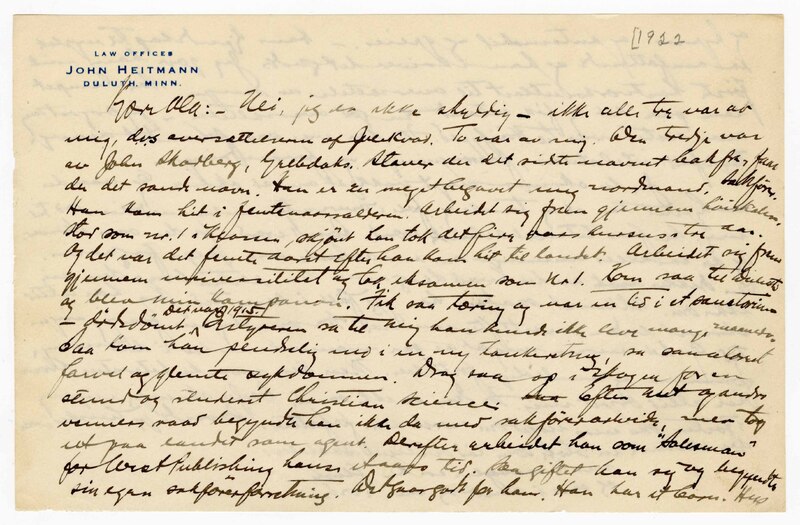 [1922
LAW OFFICES
JOHN HEITMANN
DULUTH, MINN.
Kjære Ola: - Nei, jeg er ikke skyldig - ikke alle tre var av
mig, dvs oversættelserne af Joekvad. To var av mig. Den tredje var
av John Skodberg, Grebdaks. Staver der det sidste navnet bakfra, faar
du det sande navn. Han er en meget begavet ung nordmand, Sakfører.
Han kom hit i femtenaarsalderen. Arbeidet sig frem gjennem höiskolen.
Stod som nr. 1 i klassen, skjönt han tok det fire aars kursus i tre aar.
Og det var det femte aaret efter han kom hit til landet. Arbeidet sig frem
gjennem universitetet og tok eksamen som No 1. Kom saa til Duluth
og blev min kompanion. Fik saa tæring og var en tid i et sanatorium
- dödsdömt. Det var 1915. Bestyreren sa til mig han kunde ikke leve mange maaneder.
Saa kom han pludselig ind i en ny tankeretning, sa sanatoriet
farvel og glemte sykdommen. Drog saa op i skogen for en
stund og studerte Christian Science. Efter mit og andre
venners raad begyndte han ikke da med sakförerarbeide, men tog
ut paa landet som agent. Derefter arbeidet han som "Salesman"
for West Publishing house et aars tid. Saa giftet han sig og begyndte
sin egen sakförerforretning. Det gaar godt for ham. Han har et barn.